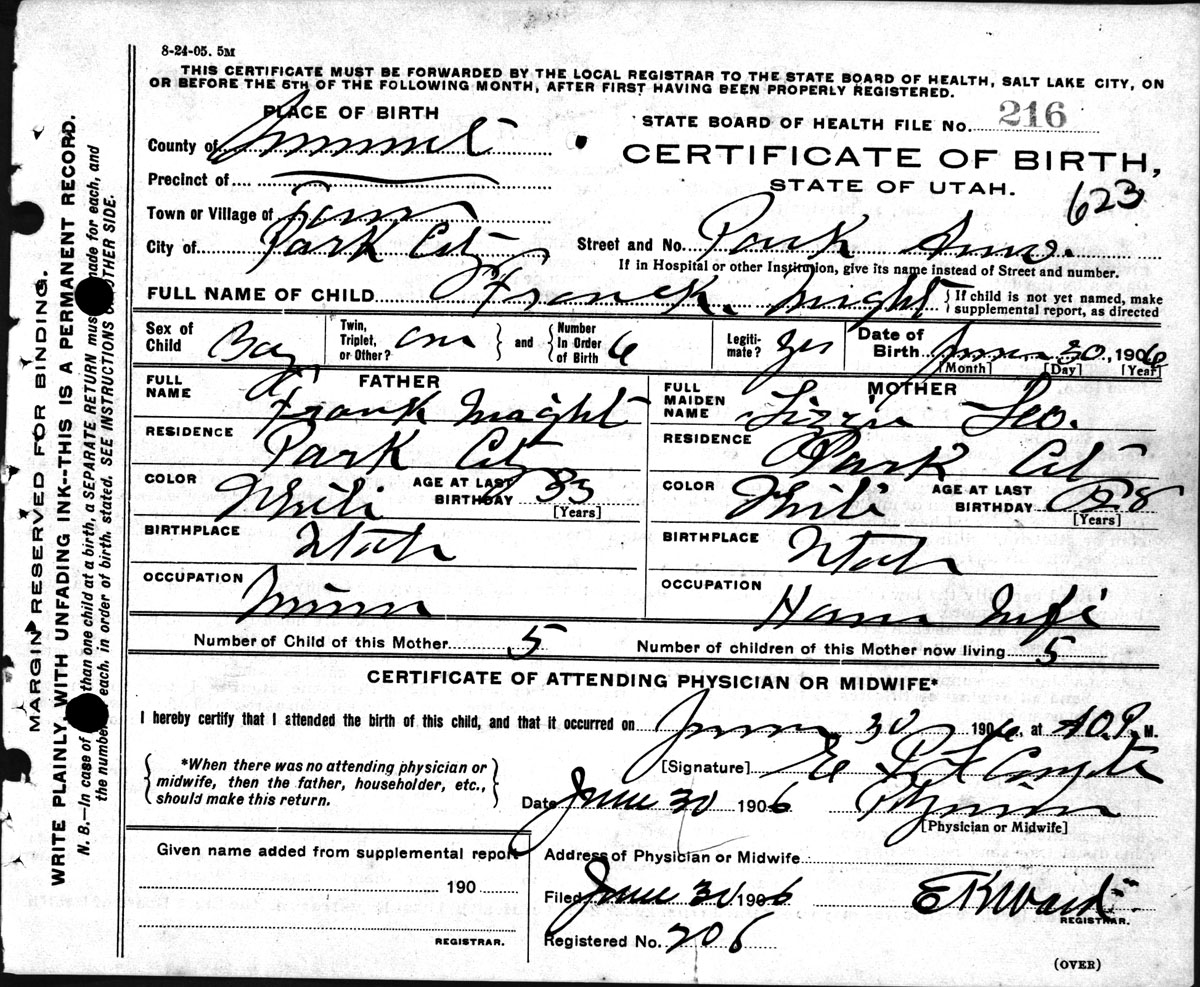 8-24-05. 5M
THIS CERTIFICATE MUST BE FORWARDED BY THE LOCAL REGISTRAR TO THE STATE BOARD OF HEALTH, SALT LAKE CITY, ON
OR BEFORE THE 5TH OF THE FOLLOWING MONTH, AFTER FIRST HAVING BEEN PROPERLY REGISTERED.
PLACE OF BIRTH
STATE BOARD OF HEALTH FILE No. 216
County of Summit
CERTIFICATE OF BIRTH,
Precinct of
STATE OF UTAH.
623
Town or Village of
City of Park City
Street and No. Park
If in Hospital or other Institution, give its name instead of Street and number.
FULL NAME OF CHILD Frank
{ If child is not yet named, make supplemental report, as directed
Sex of Child Boy
Twin, Triplet, or Other? one } and { Number In Order of Birth 6
Legitimate? yes
Date of Birth June 30, 1906
[Month] [Day] [Year]
FATHER
FULL NAME Frank
RESIDENCE Park City
COLOR White AGE AT LAST BIRTHDAY 33
[Years]
BIRTHPLACE Utah
OCCUPATION Miner
MOTHER
FULL MAIDEN NAME Lizzie
RESIDENCE Park City
COLOR White AGE AT LAST BIRTHDAY 28
[Years]
BIRTHPLACE Utah
OCCUPATION House Wife
Number of Child of this Mother 5
Number of children of this Mother now living 5
CERTIFICATE OF ATTENDING PHYSICIAN OR MIDWIFE*
I hereby certify that I attended the birth of this child, and that it occurred on June 30 1906, at P. M.
{ *When there was no attending physician or
midwife, then the father, householder, etc.,
should make this return. }
[Signature] E
Date June 30 1906 Physician
[Physician or Midwife]
Given name added from supplemental report
190
REGISTRAR.
Address of Physician or Midwife
Filed June 30 1906 E K Ward
REGISTRAR.
Registered No. 206
(OVER)
MARGIN RESERVED FOR BINDING.
WRITE PLAINLY, WITH UNFADING INK--THIS IS A PERMANENT RECORD.
N. B.—In case of than one child at a birth, a SEPARATE RETURN must made for each, and
the number each, in order of birth, stated. SEE INSTRUCTIONS OTHER SIDE.